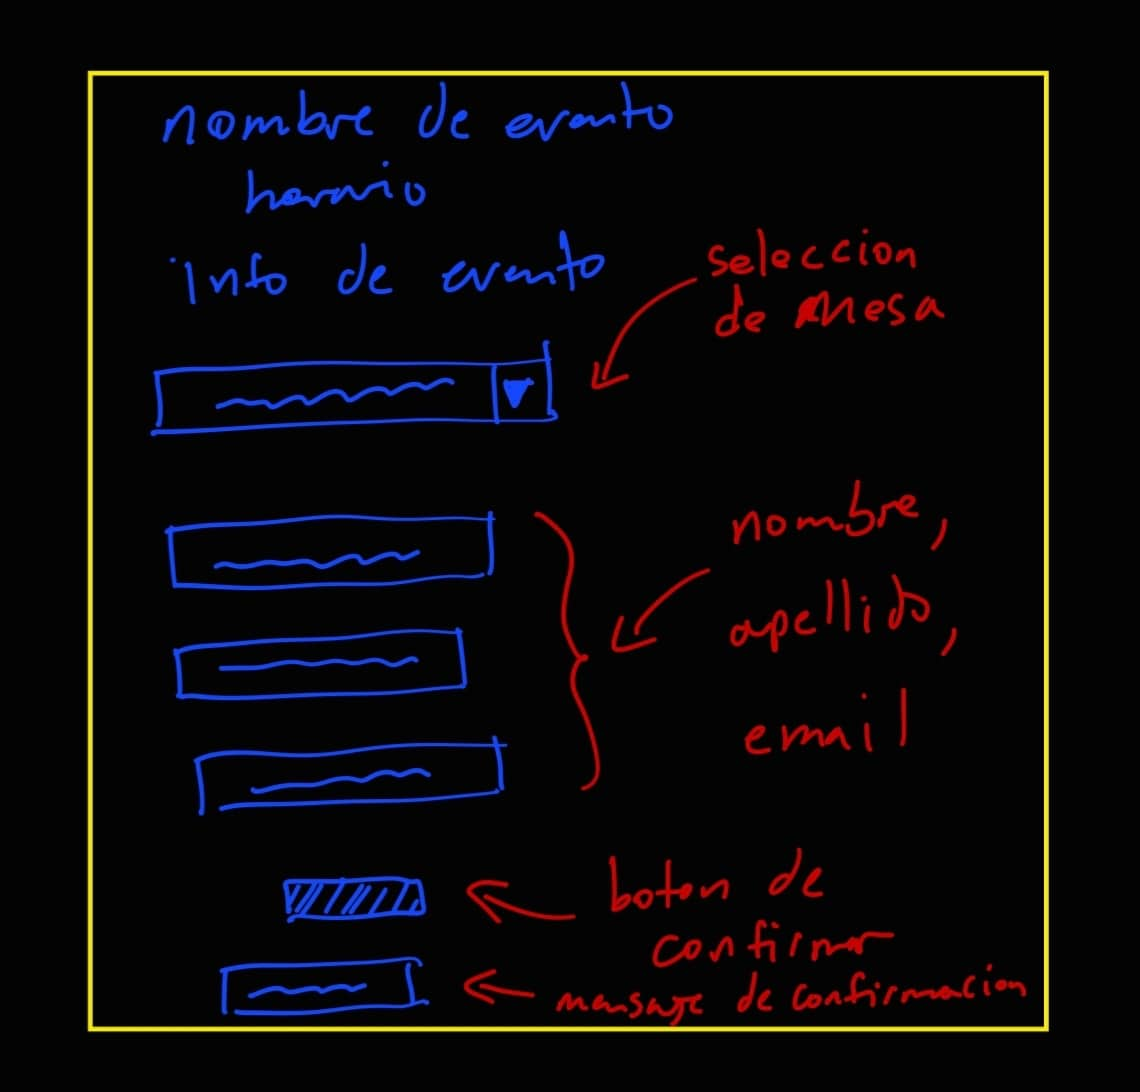 nombre de evento
horario
info de evento
seleccion
de mesa
nombre,
apellido,
email
boton de
confirmar
mensaje de confirmacion